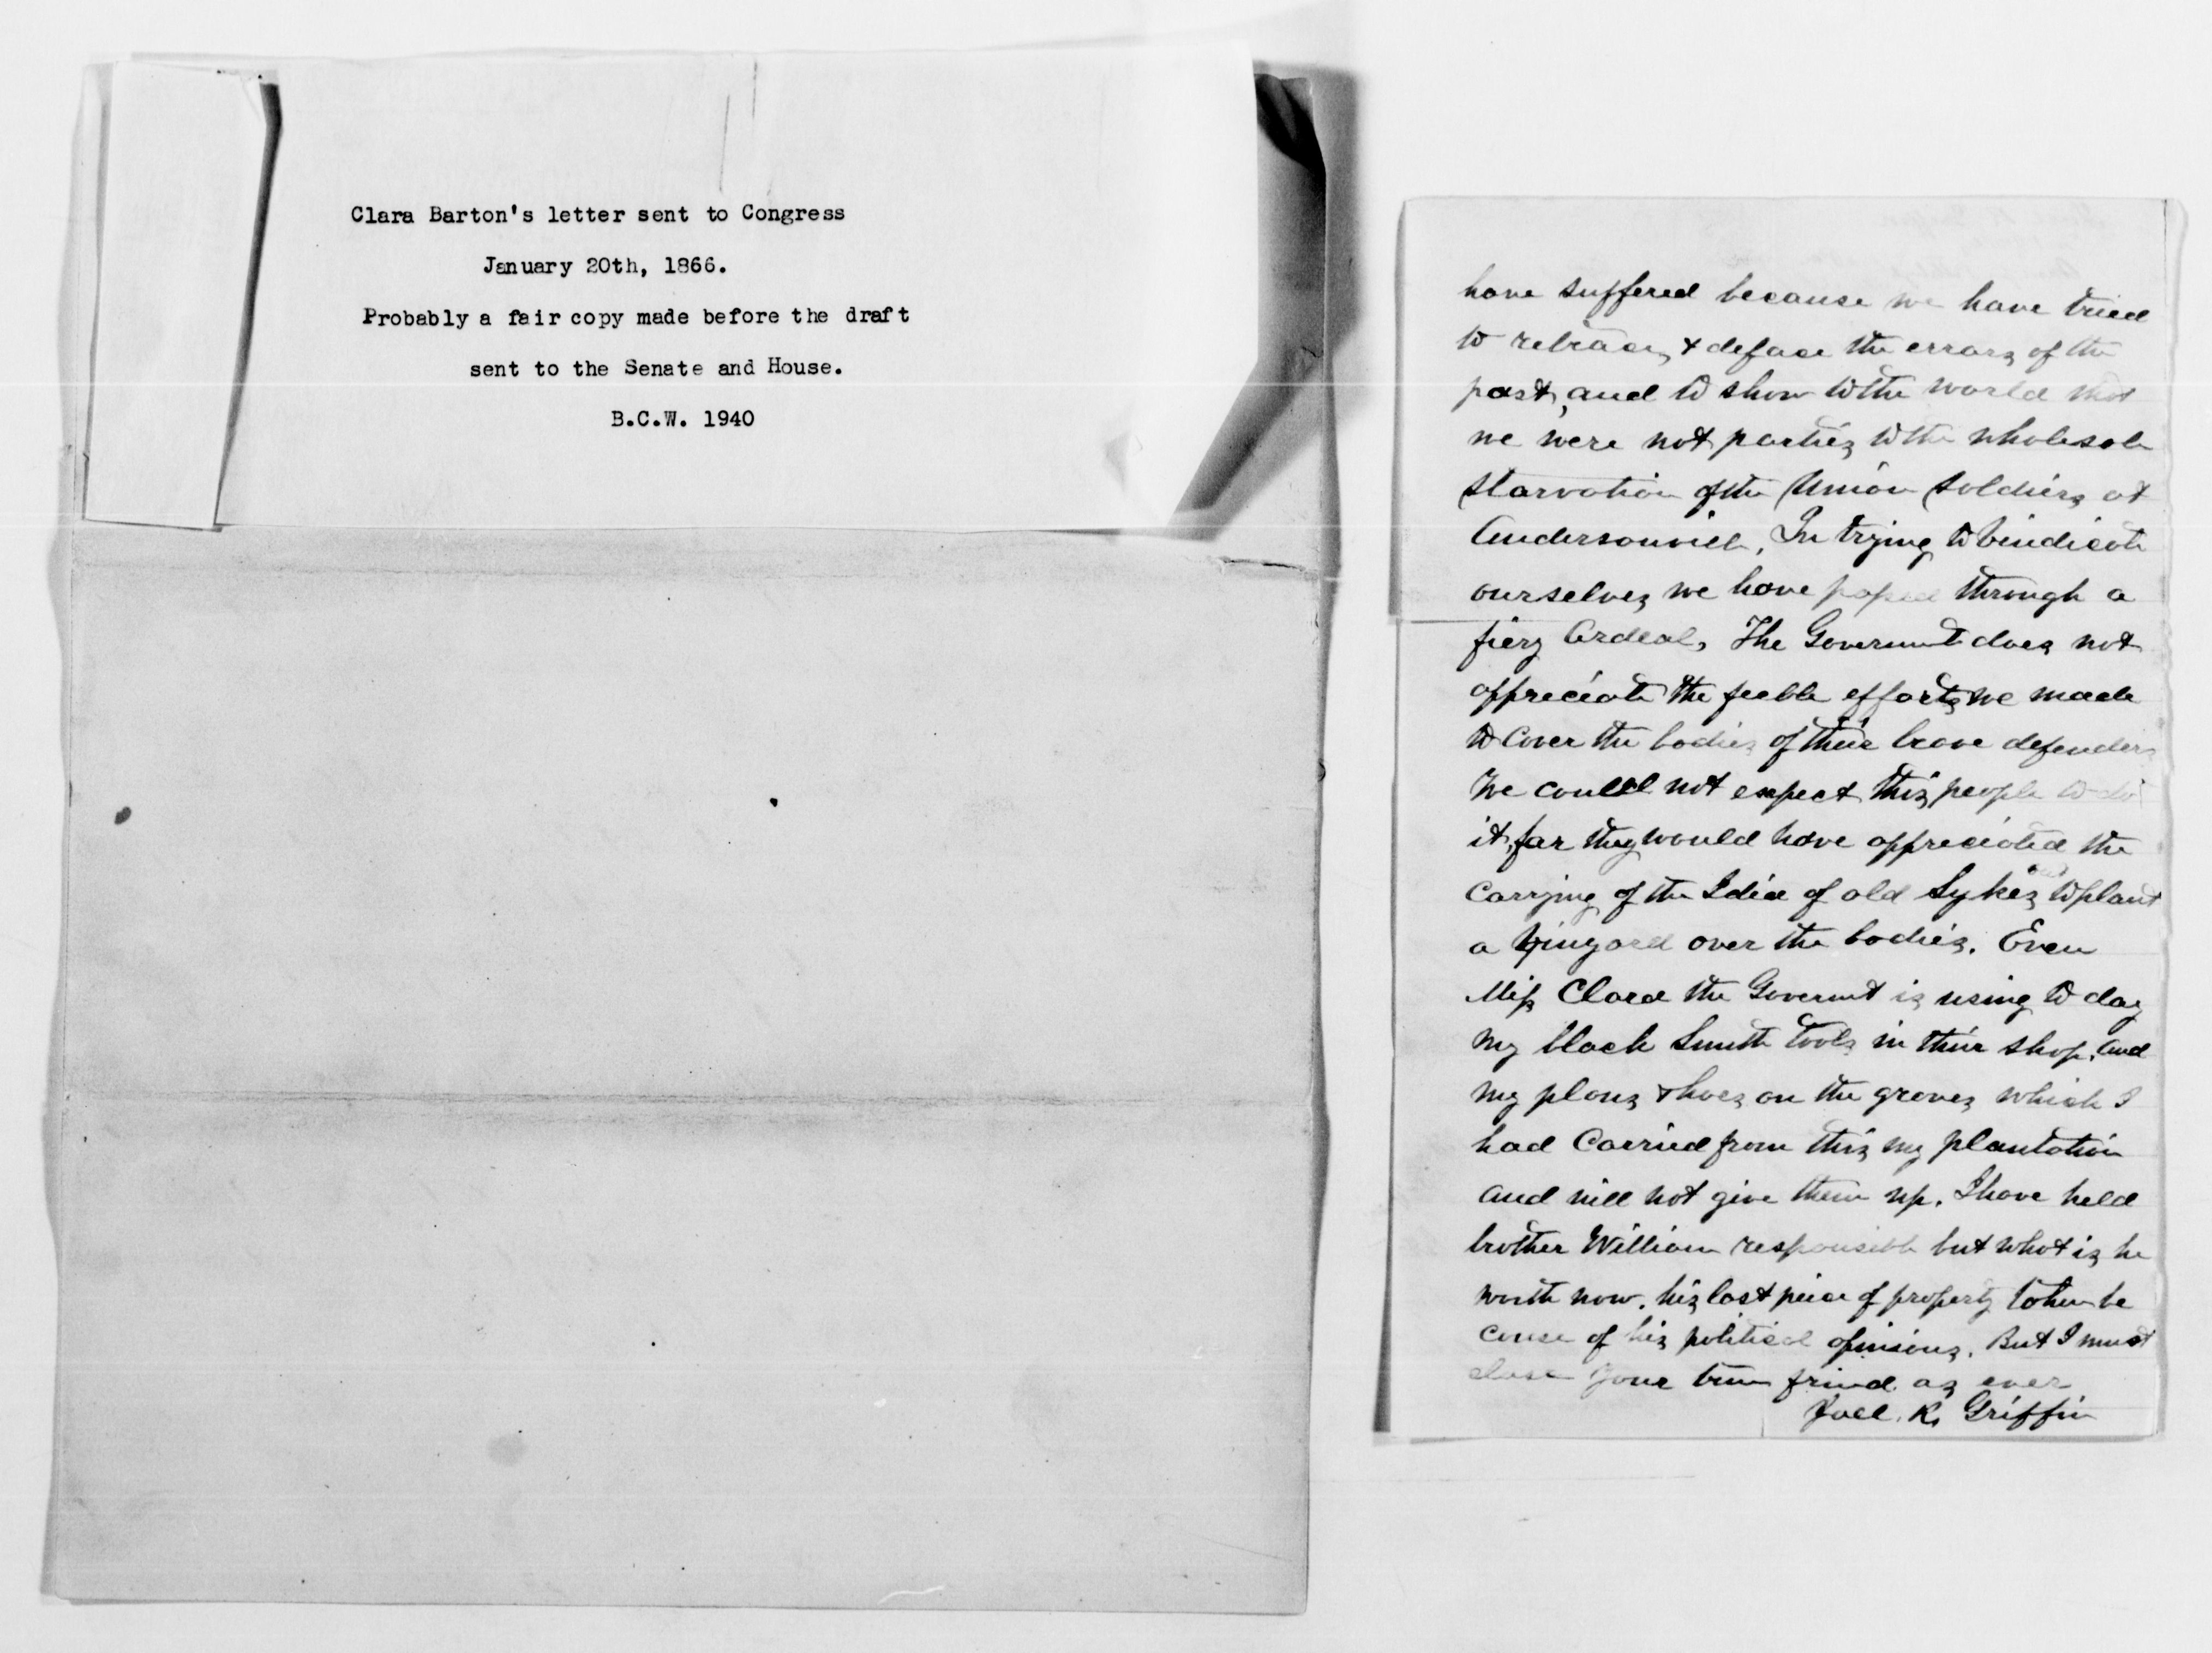 Clara Barton's letter sent to Congress
January 20th, 1866.
Probably a fair copy made before the draft
sent to the Senate and House.
B.C.W. 1940
have suffered because we have tried
to retrace, & deface the errors of the
past, and to show to the world that
we were not parties to the wholesale
starvation of the Union Soldiers at
Andersonville, In trying to vindicate
ourselves we have passed through a
fiery Ordeal, The Government does not
appreciate the feeble efforts we made
to Cover the bodies of their brave defenders
We could not expect this people to do
it, for they would have appreciated the
Carrying of the Idea of old Sykes to plant
a Vinyard over the bodies. Even
Miss Clara the Goverment is using to day
my black Smith tools in their shop. And
my plows & hoes on the graves which I
had Carried from this my plantation
and will not give them up. I have held
brother William responsible but what is he
worth now. his last peice of property taken be
cause of his political opinions. But I must
close Your true friend as ever
Joel. R. Griffin